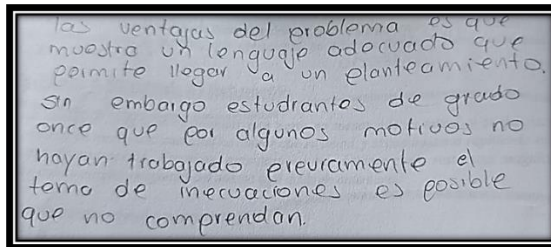 las ventajas del problema es que
muestra un lenguaje adecuado que
permite llegar a un planteamiento.
sin embargo estudiantes de grado
once que por algunos motivos no
hayan trabajado previamente el
tema de inecuaciones es posible
que no comprendan.